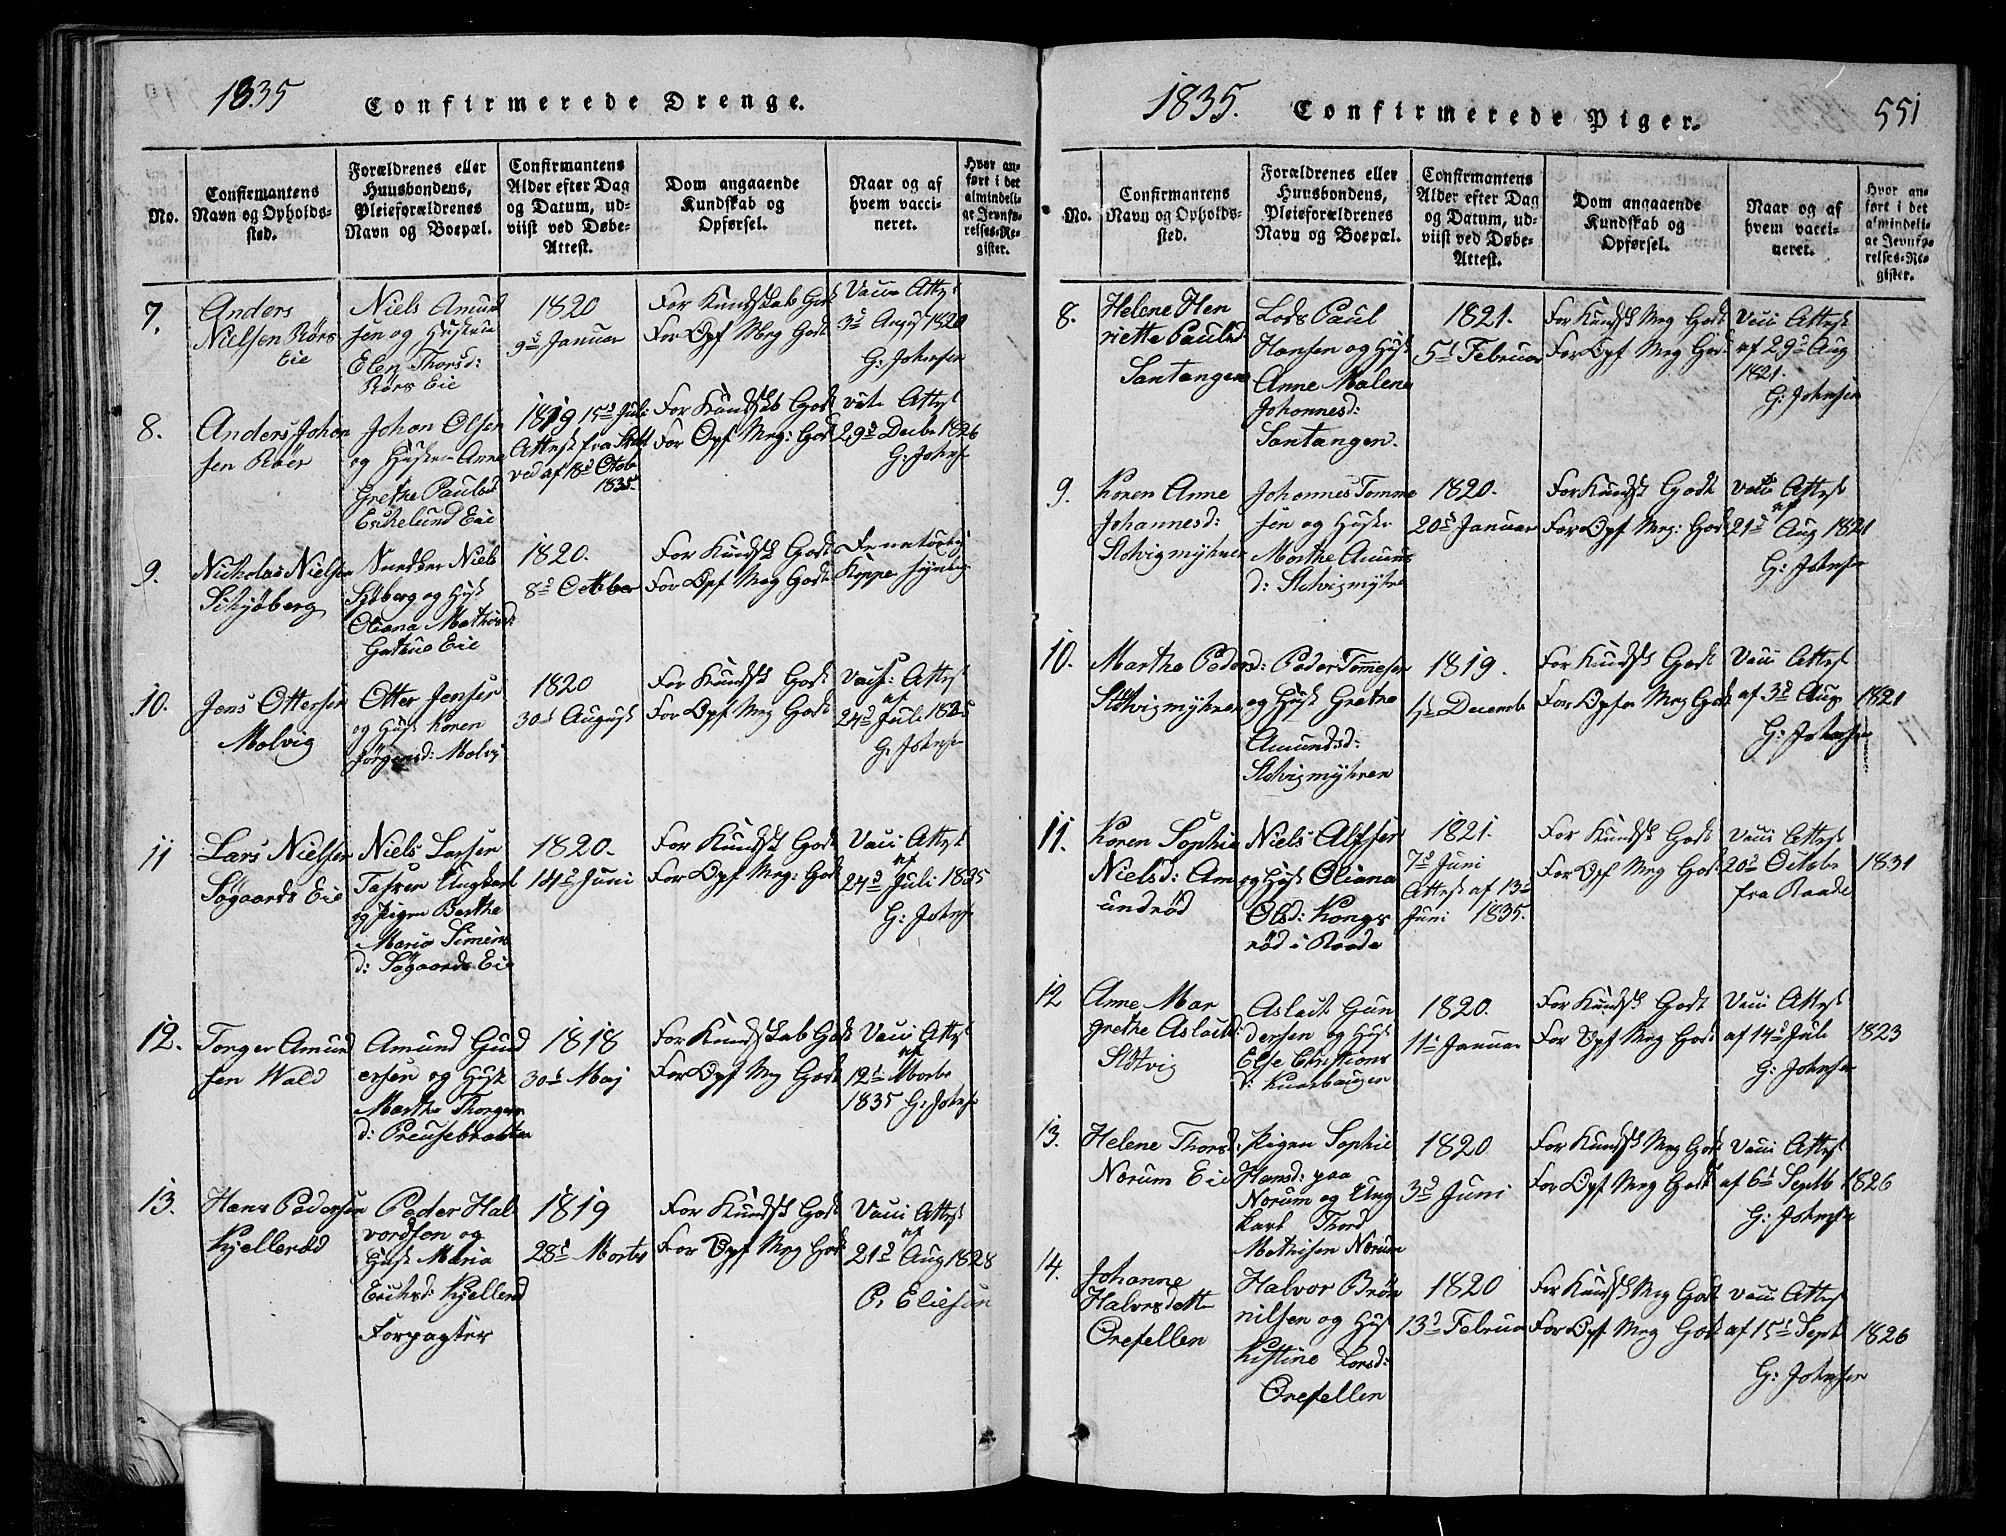 1835
Confirmerede Drenge.
No.
Confirmantens
Navn og Opholds-
sted.
Forældrenes eller
Huusbondens,
Pleieforældrenes
Navn og Boepæl.
Confirmantens
Alder efter Dag
og Datum, ud-
viist ved Døbe-
Attest.
Dom angaaende
Kundskab og
Opførsel.
Naar og af
hvem vacci-
neret.
Hvor an-
ført i det
almindeli-
ge Jevnfø-
relses-Re-
gister.
7.
Anders
Nielsen Rørs
Eie
Niels Amund
sen og Hustru
Elen Thorsd:
Rørs Eie
1820
9d Januar
For Kundskab Godt
For Opf Meg Godt
Vacci Attest
3d August 1820
G: Johnsen
8.
Anders Johan
sen Röer
Johan Olsen
og Hustru Anne
Grethe Paulsd
Eskelund Eie
1819 15d Juli
Attest fra
ved af 18d Octob
1835
For Kundskab Godt
For Opf Meg: Godt
Attest
29d Decbr 1826
G: Johnse
9.
Nicholas Nielsen
Schjöberg
Niels
Sjöberg og Hust
Oliana Mathiasd:
Eie
1820.
8d October
For Kundsk Godt
For Opf Meg Godt
Koppe
10.
Jens Ottersen
Molvig
Otter Jensen
og Hust Karen
Jörgensd: Molvig
1820
30d August
For Kundsk Godt
For Opf Meg Godt
Vacci: Attest
af
24d Juli 1835
G: Johnse
11
Lars Nielsen
Sögaards Eie
Niels Larsen
Ungkarl
og Pigen Berthe
Maria Simens
d: Sögaards Eie
1820.
14d Juni
For Kundsk Godt
For Opf Meg: Godt
Vacci Attest
af
24d Juli 1835
G: Johnse
12.
Torger Amund
sen Wald
Amund Gund
ersen og Hust
Marthe Thorgers
d: Preusebratten
1818
30d Maj
For Kundskab Godt
For Opf Meg Godt
Vacci Attest
af
12d Marts
1835 G: Johnse
13.
Hans Pedersen
Kjelleröd
Peder Hal
vordsen og
Hust Maria
Erichsd: Kjelleröd
Forpagter
1819
28d Marts
For Kundsk Godt
For Opf Meg Godt
Vacci Attest
af
21d Aug 1828
P. Eliesen
1835.
Confirmerede Piger.
551
No.
Confirmantens
Navn og Opholds-
sted.
Forældrenes eller
Huusbondens,
Pleieforældrenes
Navn og Boepæl.
Confirmantens
Alder efter Dag
og Datum, ud-
viist ved Døbe-
Attest.
Dom angaaende
Kundskab og
Opførsel.
Naar og af
hvem vacci-
neret.
Hvor an-
ført i det
almindeli-
ge Jevnfø-
relses-Re-
gister.
8.
Helene Hen
riette Paulsd
Santangen
Lods Paul
Hansen og Hust
Anne Malene
Johannesd:
Santangen.
1821.
5d Februar
For Kundsk Meg Godt
For Opf Meg Godt
Vacci Attest
af 29d Aug
1821.
G: Johnsen
9.
Karen Anne
Johannesd:
Slotvigmyhren
Johannes Tomme
sen og Hustr
Marthe Amunds
d: Slotvigmyhren
1820.
20d Januar
For Kundsk Godt
For Opf Meg: Godt
Vacci Attest
af
21d Aug 1821
G: Johnsen
10.
Marthe Pedersd:
Slotvigmyhren
Peder Tommesen
og Hust Grethe
Amundsd:
Slotvigmyhren
1819.
4d Decemb
For Kundsk Godt
For Opfør Meg Godt
Vacci Attest
af 3d Aug 1821
G: Johnsen
11.
Karen Sophie
Nielsd: Am
undröd
Niels Alfsen
og Hust Oliana
Olsd: Kongs
röd i Raade
1821.
7d Juni
Attest af 13d
Juni 1835.
For Kundsk Godt
For Opf Meg Godt
Vacci Attest
20d Octobr 1831
fra Raade
12
Anne Mar
grethe Aslachsd:
Slotvig
Aslach Gun
dersen og Hust
Else Christians
d:
1820.
11d Januar
For Kundsk Godt
For Opf Meg Godt
Vacci Attest
af 14d Juli 1823
G: Johnsen
13.
Helene Thorsd:
Norum Eie
Pigen Sophie
Hansd: paa
Norum og Ung
karl Thord
Mathisen Norum
1820
3d Juni
For Kundsk Meg Godt
For Opf Meg Godt
Vacci Attest
af 6d Septb 1826
G: Johnsen
14.
Johanne
Halvorsdatte
Orefellen
Halvor Brön
nilsen og Hust
Kistine Larsd:
Orefellen
1820
13d Februar
For Kundsk Meg Godt
For Opf Meg Godt
Vacci Attest
af 15d Sept 1826
G: Johnsen